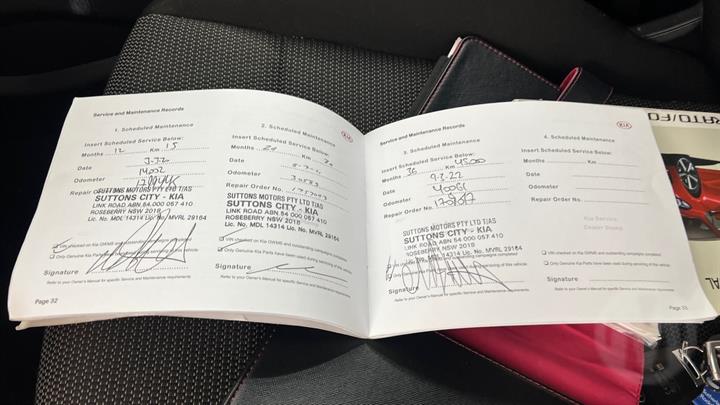 Service and Maintenance Records
1. Scheduled Maintenance
Insert Scheduled Service Below:
Months 12 Km 15
Date 3-3-20
Odometer 14002
Repair Order No.
SUTTONS MOTORS PTY LTD T/AS
SUTTONS CITY - KIA
LINK ROAD ABN 54 000 057 410
ROSEBERRY NSW 2018
Lic. No. MDL 14314 Lic. No. MVRL 29164
VIN checked on Kia GWMS and outstanding campaigns
Only Genuine Kia Parts have been used during servicing of this vehicle
Signature
Refer to your Owner's Manual for specific Service and Maintenance requirements
Page 32
2. Scheduled Maintenance
KIA
Insert Scheduled Service Below:
Months Km
Date
Odometer 30583
Repair Order No.
SUTTONS MOTORS PTY LTD T/AS
SUTTONS CITY - KIA
LINK ROAD ABN 54 000 057 410
ROSEBERRY NSW 2018
Lic. No. MDL 14314 Lic. No. MVRL 29164
VIN checked on Kia GWMS and outstanding campaigns
Only Genuine Kia Parts have been used during servicing of this vehicle
Signature
Refer to your Owner's Manual for specific Service and Maintenance requirements
Service and Maintenance Records
3. Scheduled Maintenance
Insert Scheduled Service Below:
Months 36 Km 45000
Date 9.3.22
Odometer 40061
Repair Order No.
SUTTONS MOTORS PTY LTD T/AS
SUTTONS CITY - KIA
LINK ROAD ABN 54 000 057 410
ROSEBERRY NSW 2018
Lic. No. MDL 14314 Lic. No. MVRL 29164
campaigns completed
Only Genuine Kia Parts have been used during servicing of this vehicle
Signature
Refer to your Owner's Manual for specific Service and Maintenance requirements
KIA
4. Scheduled Maintenance
Insert Scheduled Service Below:
Months Km
Date
Odometer
Repair Order No.
Kia Service
Dealer Stamp
VIN checked on Kia GWMS and outstanding campaigns completed
Only Genuine Kia Parts have been used during servicing of this vehicle
Signature
Refer to your Owner's Manual for specific Service and Maintenance requirements
Page 33
RATO/FO